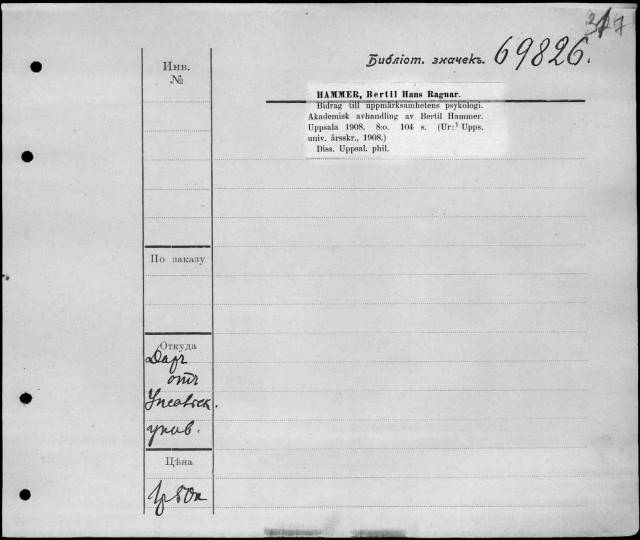 Библіот. значекъ. 69826.
Инв.
№
HAMMER, Bertil Hans Ragnar.
Bidrag till uppmärksamhetens psykologi.
Akademisk avhandling av Bertil Hammer.
Uppsala 1908. 8:o. 104 s. (Ur: Upps.
univ. årsskr., 1908.)
Diss. Uppsal. phil.
По заказу
Откуда
Даръ
отъ
Упсальск.
унив.
Цѣна
1р 50к